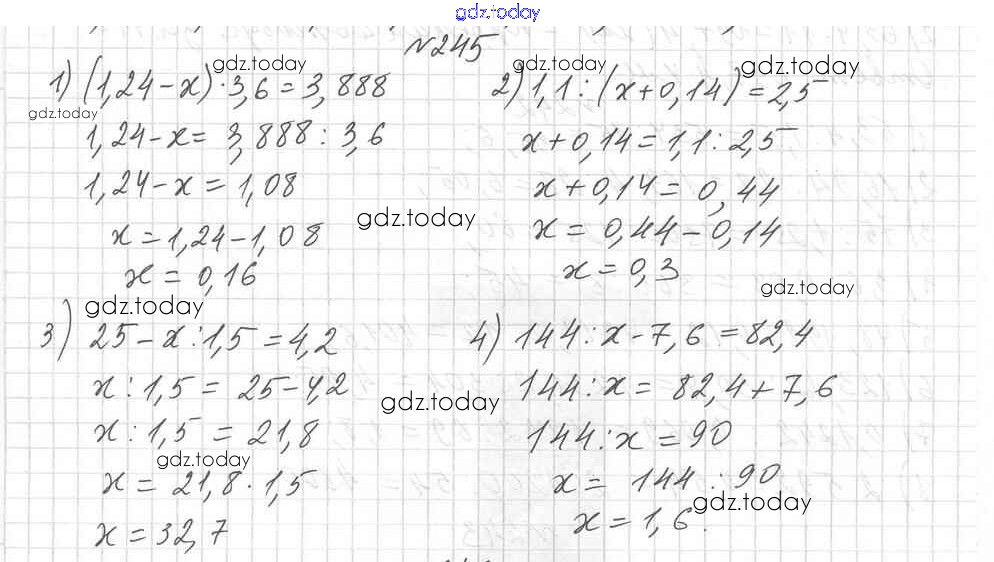 gdz.today
№245
1) (1,24-x)·3,6=3,888
1,24-x=3,888:3,6
1,24-x=1,08
x=1,24-1,08
x=0,16
2) 1,1:(x+0,14)=2,5
x+0,14=1,1:2,5
x+0,14=0,44
x=0,44-0,14
x=0,3
3) 25-x:1,5=4,2
x:1,5=25-4,2
x:1,5=21,8
x=21,8·1,5
x=32,7
4) 144:x-7,6=82,4
144:x=82,4+7,6
144:x=90
x=144:90
x=1,6.
gdz.today
gdz.today
gdz.today
gdz.today
gdz.today
gdz.today
gdz.today
gdz.today
gdz.today
gdz.today